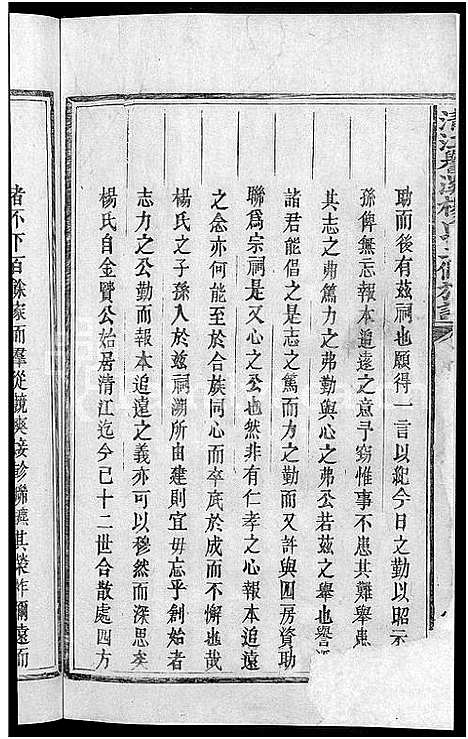 清江
楊氏三修族譜
助而後有茲祠也願得一言以紀今日之勤以昭示
孫俾無忘報本追遠之意予竊惟事不患其難舉患
其志之弗篤力之弗勤與心之弗公若茲之舉也譽
諸君能倡之是志之篤而力之勤又許與四房資助
聯為宗祠是又心之公也然非有仁孝之心報本追遠
之念亦何能至於合族同心而卒底於成而不懈也哉
楊氏之子孫入於茲祠溯所由建則宜毋忘乎創始者
志力之公勤而報本追遠之義亦可以穆然而深思矣
楊氏自金賢公始居清江迄今已十二世合散處四方
者不下百餘家而羣從競爽接軫聯鑣其榮祚彌遠而